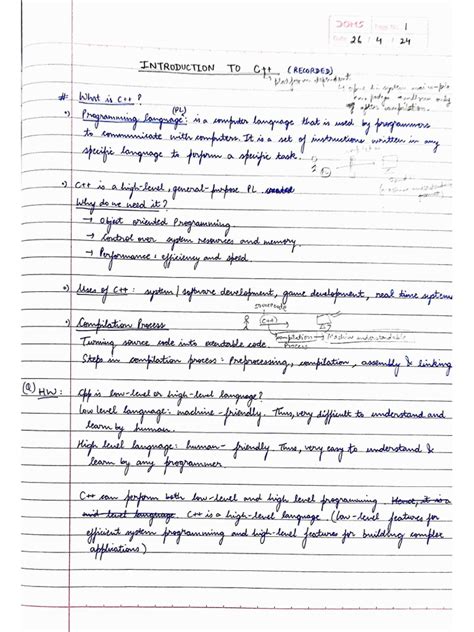 Page No. 1
Date 26 / 4 / 24
INTRODUCTION TO C++ (RECORDED)
Platform dependent
after compilation.
#: What is C++?
(PL)
Programming language: is a computer language that is used by programmers
to communicate with computers. It is a set of instructions written in any
specific language to perform a specific task.
C++ is a high-level, general-purpose PL
Why do we need it?
→ Object oriented Programming.
→ Control over system resources and memory.
→ Performance: efficiency and speed.
Uses of C++: system/software development, game development, real time systems
sourcecode
Compilation Process (C++)
Compilation → Machine understandable
Process
Turning source code into executable code.
Steps in compilation process: Preprocessing, compilation, assembly & linking
Q HW: Cpp is low-level or high-level language?
Low level language: machine-friendly. Thus, very difficult to understand and
learn by human.
High level language: human-friendly. Thus, very easy to understand &
learn by any programmer.
C++ can perform both low-level and high level programming. Hence, it is a
mid level language. C++ is a high-level language (low-level features for
efficient system programming and high-level features for building complex
applications)